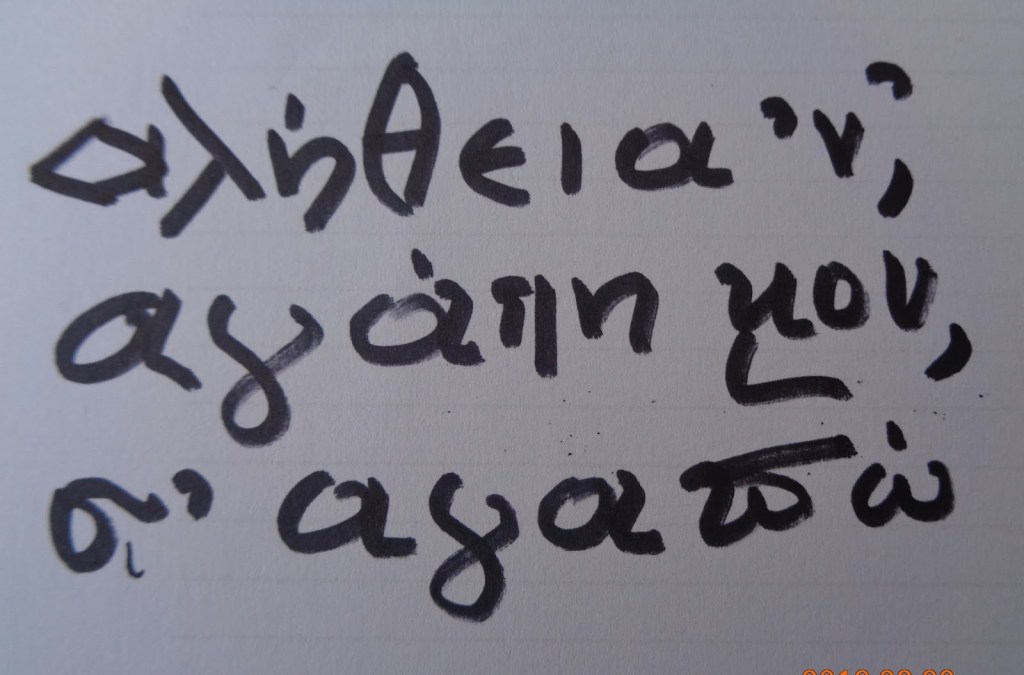 αλήθεια 'ν',
αγάπη μου,
σ' αγαπώ